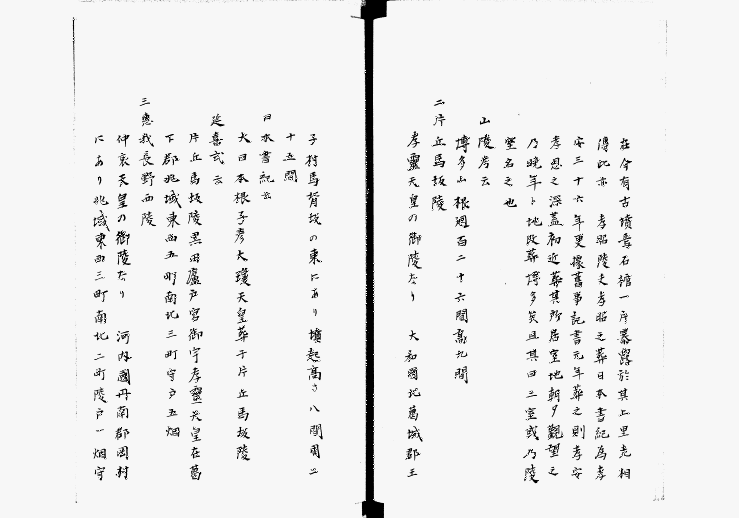 在今有古墳其石槨一片暴露於其上里老相
傳記亦 孝昭陵夫孝昭之葬日本書紀為孝
安三十六年更據舊事記書元年葬之則孝安
孝思之深蓋初近葬其所居室地朝夕觀望之
乃晩年卜地改葬博多矣且其曰三室或乃陵
室名之也
山陵考云
博多山根廻百二十六間高九間
二片丘馬坂陵
孝靈天皇の御陵なり 大和國北葛城郡王
子村馬脊坂の東にあり墳起高さ八間周二
十五間
日本書紀云
大日本根子彥太瓊天皇葬于片丘馬坂陵
延喜式云
片丘馬坂陵黒田廬戸宮御宇孝靈天皇在葛
下郡兆域東西五町南北三町守戸五烟
三惠我長野西陵
仲哀天皇の御陵なり 河内國丹南郡岡村
にあり兆域東西三町南北二町陵戸一烟守